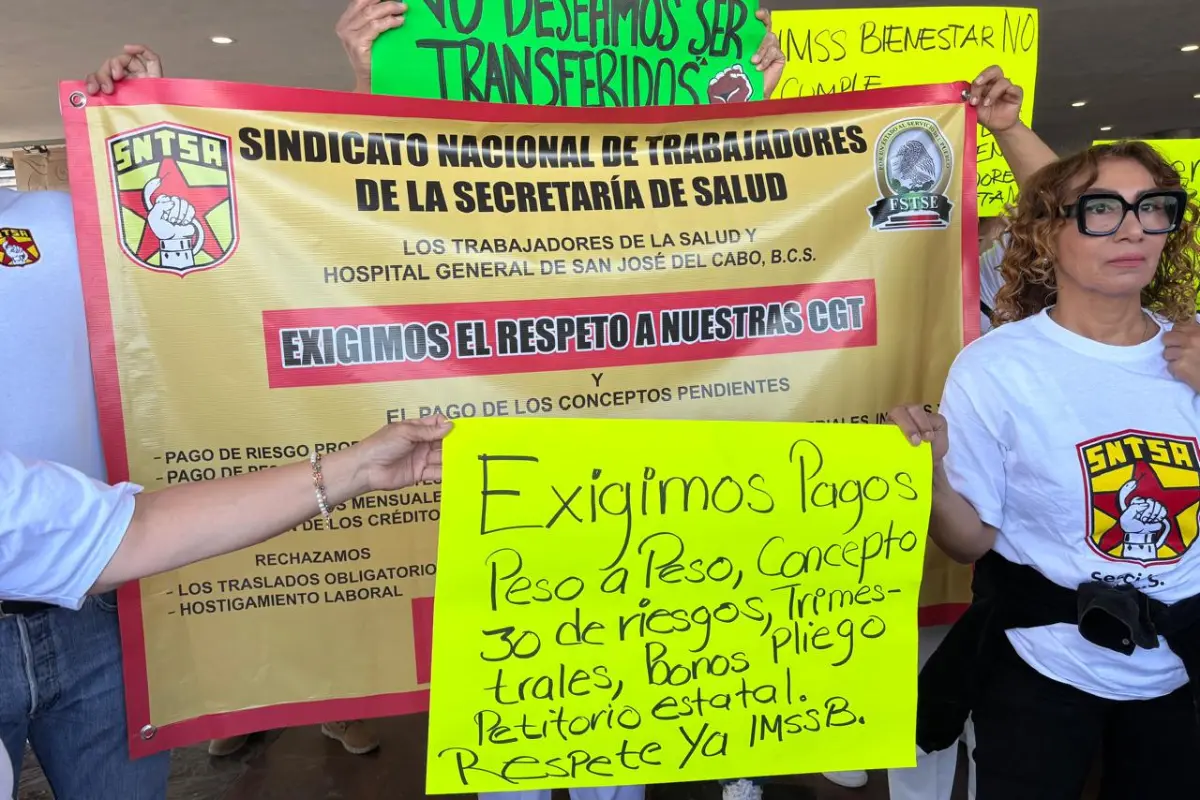 NO DESEAMOS SER
TRANSFERIDOS"
IMSS BIENESTAR NO
CUMPLE
SNTSA
SINDICATO NACIONAL DE TRABAJADORES
DE LA SECRETARÍA DE SALUD
FSTSE
LOS TRABAJADORES DE LA SALUD Y
HOSPITAL GENERAL DE SAN JOSÉ DEL CABO, B.C.S.
EXIGIMOS EL RESPETO A NUESTRAS CGT
Y
EL PAGO DE LOS CONCEPTOS PENDIENTES
- PAGO DE RIESGO
- PAGO DE
MENSUALE
DE LOS CRÉDITO
RECHAZAMOS
- LOS TRASLADOS OBLIGATORIO
- HOSTIGAMIENTO LABORAL
Exigimos Pagos
Peso a Peso, Concepto
30 de riesgos, Trimes-
trales, Bonos Pliego
Petitorio estatal.
Respete Ya IMSSB.
SNTSA